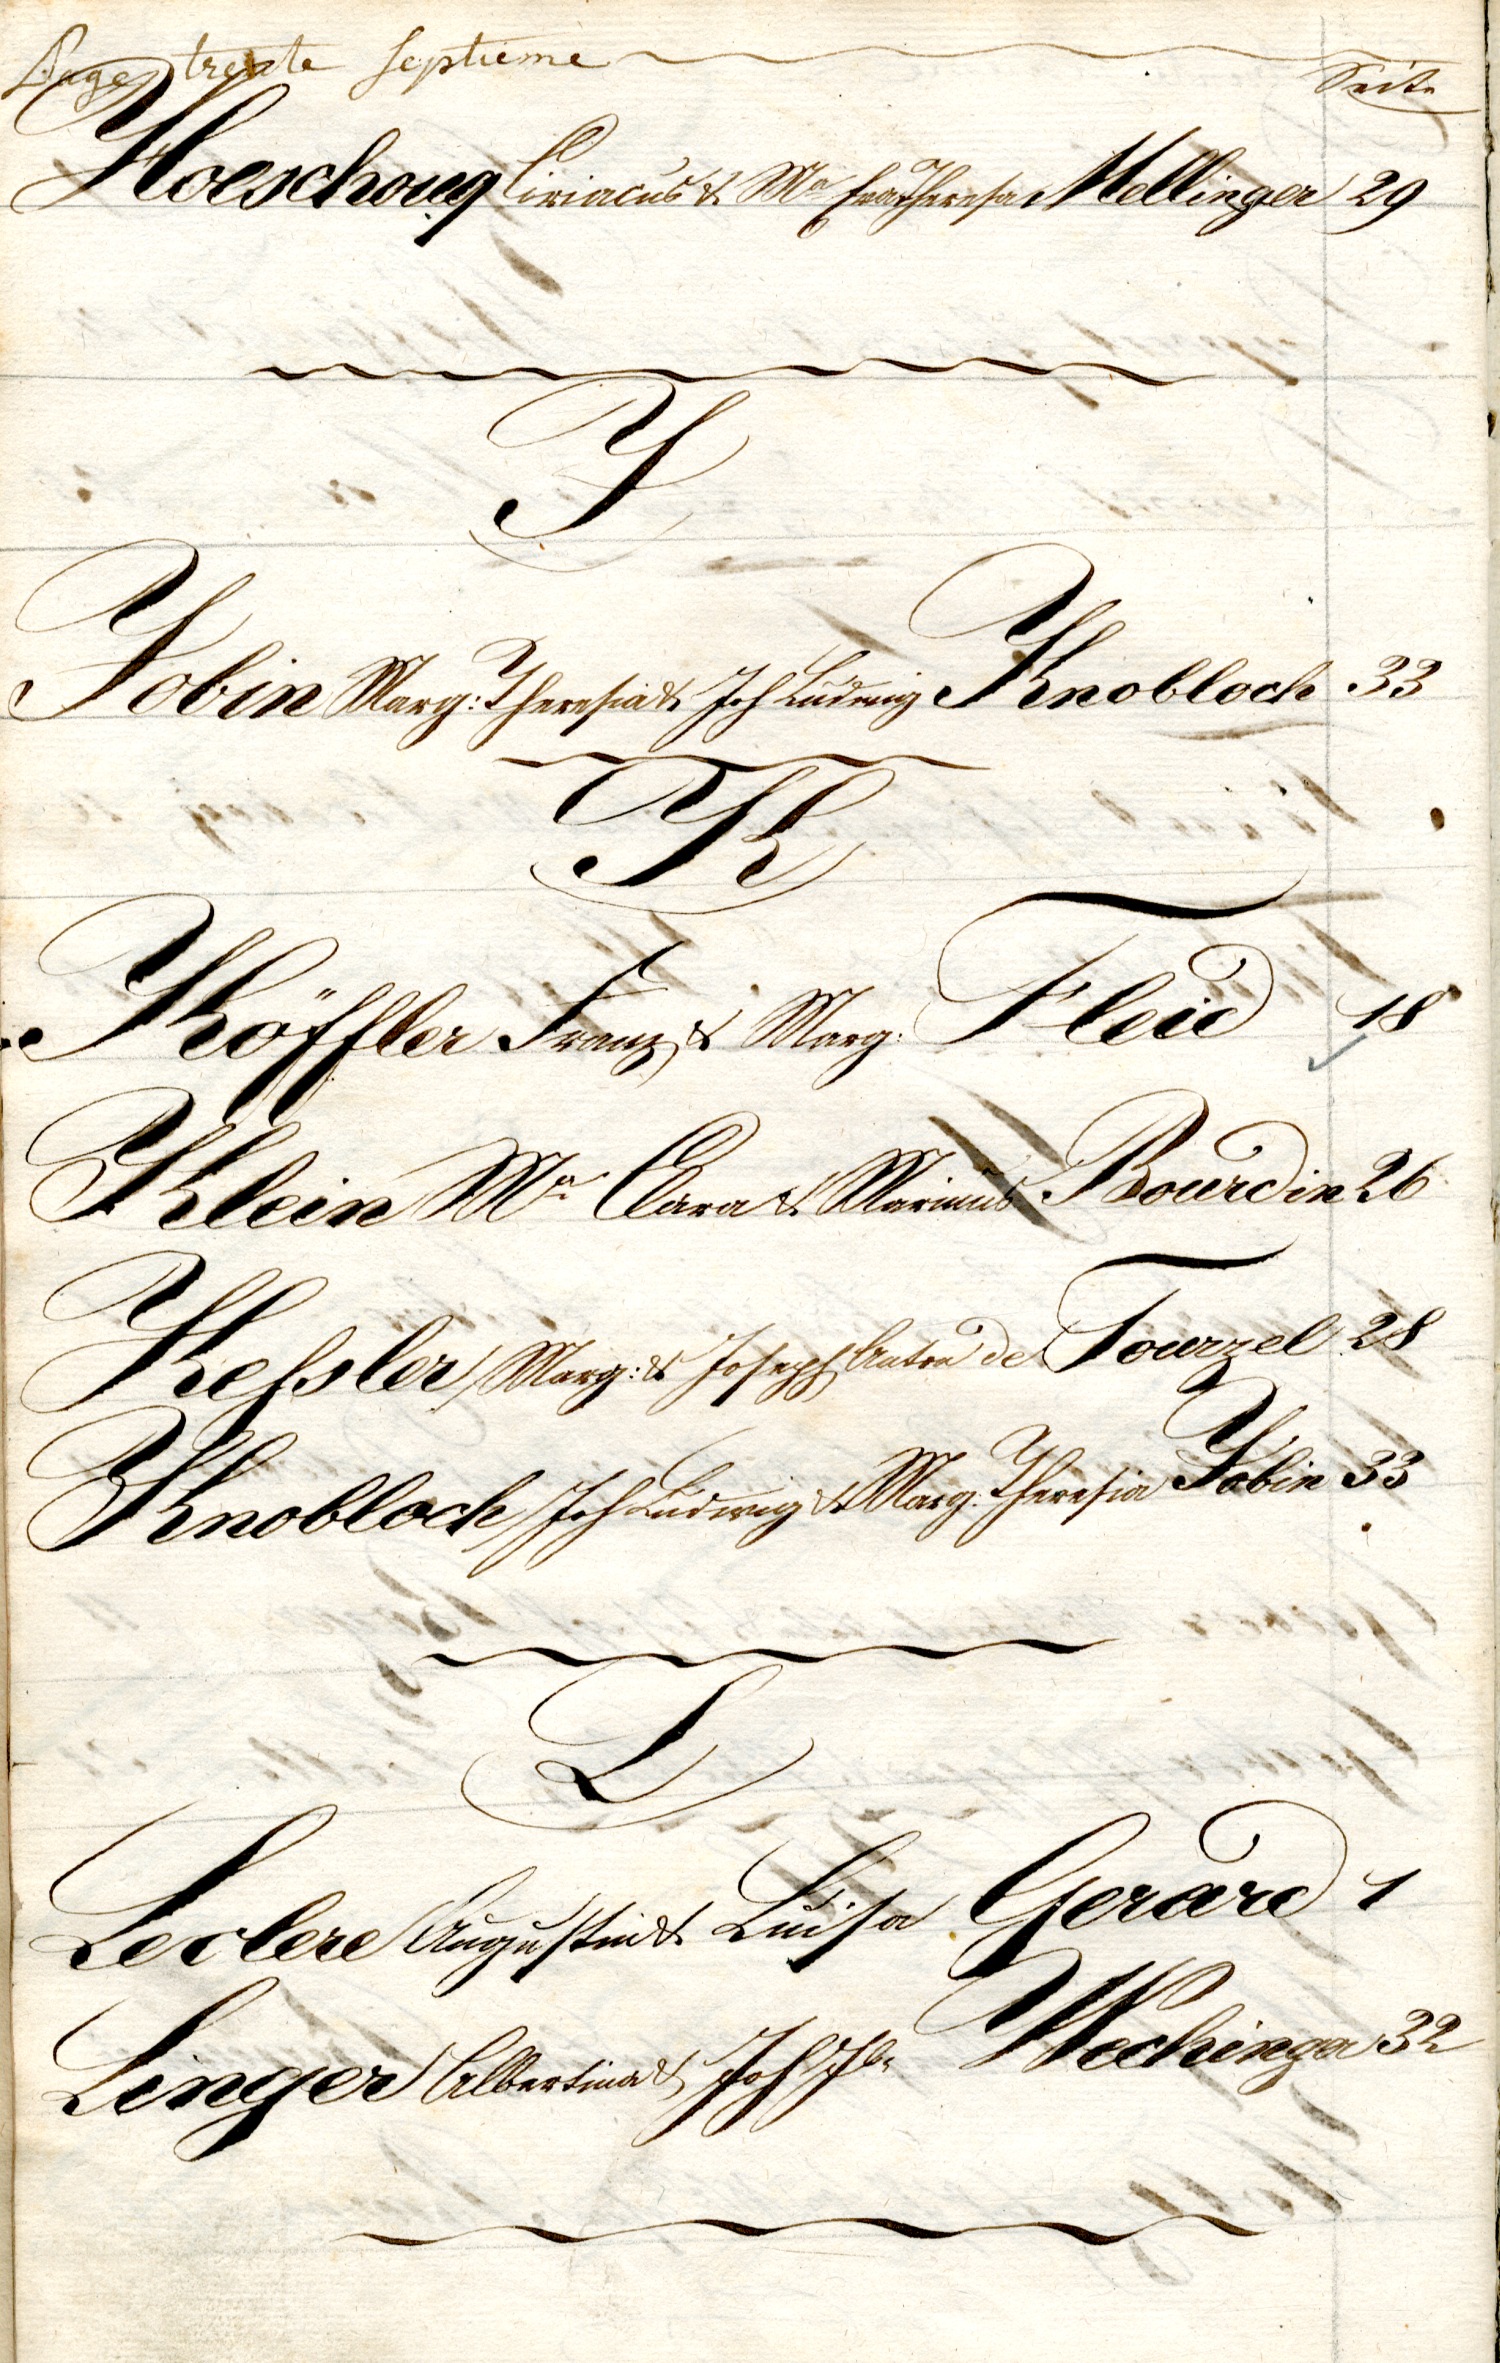 Page trente septieme
Seite
Hoeschoug Ciriacus & Ma Eva Theresa Mellinger 29
J
Jobin Marg: Theresia & Joh Ludwig Knobloch 33
K
Köffler Franz & Marg: Fleid 18
Klein Ma Clara & Marinus Bourdin 26
Kessler Marg: & Joseph Anton de Tourzel 28
Knobloch Joh Ludwig & Marg. Theresia Jobin 33
L
Leclere Augustin & Luisa Gerard 1
Linger Albertina & Joh Wechinger 32